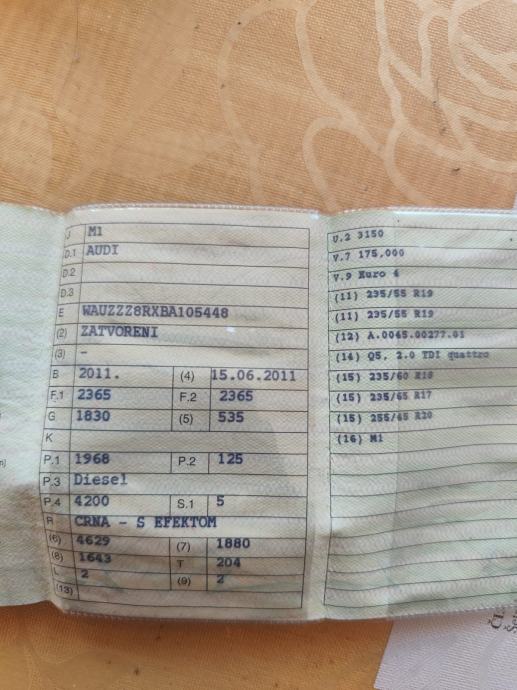 J M1
D.1 AUDI
D.2
D.3
E WAUZZZ8RXBA105448
(2) ZATVORENI
(3) -
B 2011. (4) 15.06.2011
F.1 2365 F.2 2365
G 1830 (5) 535
K
P.1 1968 P.2 125
P.3 Diesel
P.4 4200 S.1 5
R CRNA - S EFEKTOM
(6) 4629 (7) 1880
(8) 1643 T 204
L 2 (9) 2
(13)
U.2 3150
V.7 175,000
V.9 Euro 4
(11) 235/55 R19
(11) 235/55 R19
(12) A.0045.00277.01
(14) Q5, 2.0 TDI quattro
(15) 235/60 R18
(15) 235/65 R17
(15) 255/45 R20
(16) M1